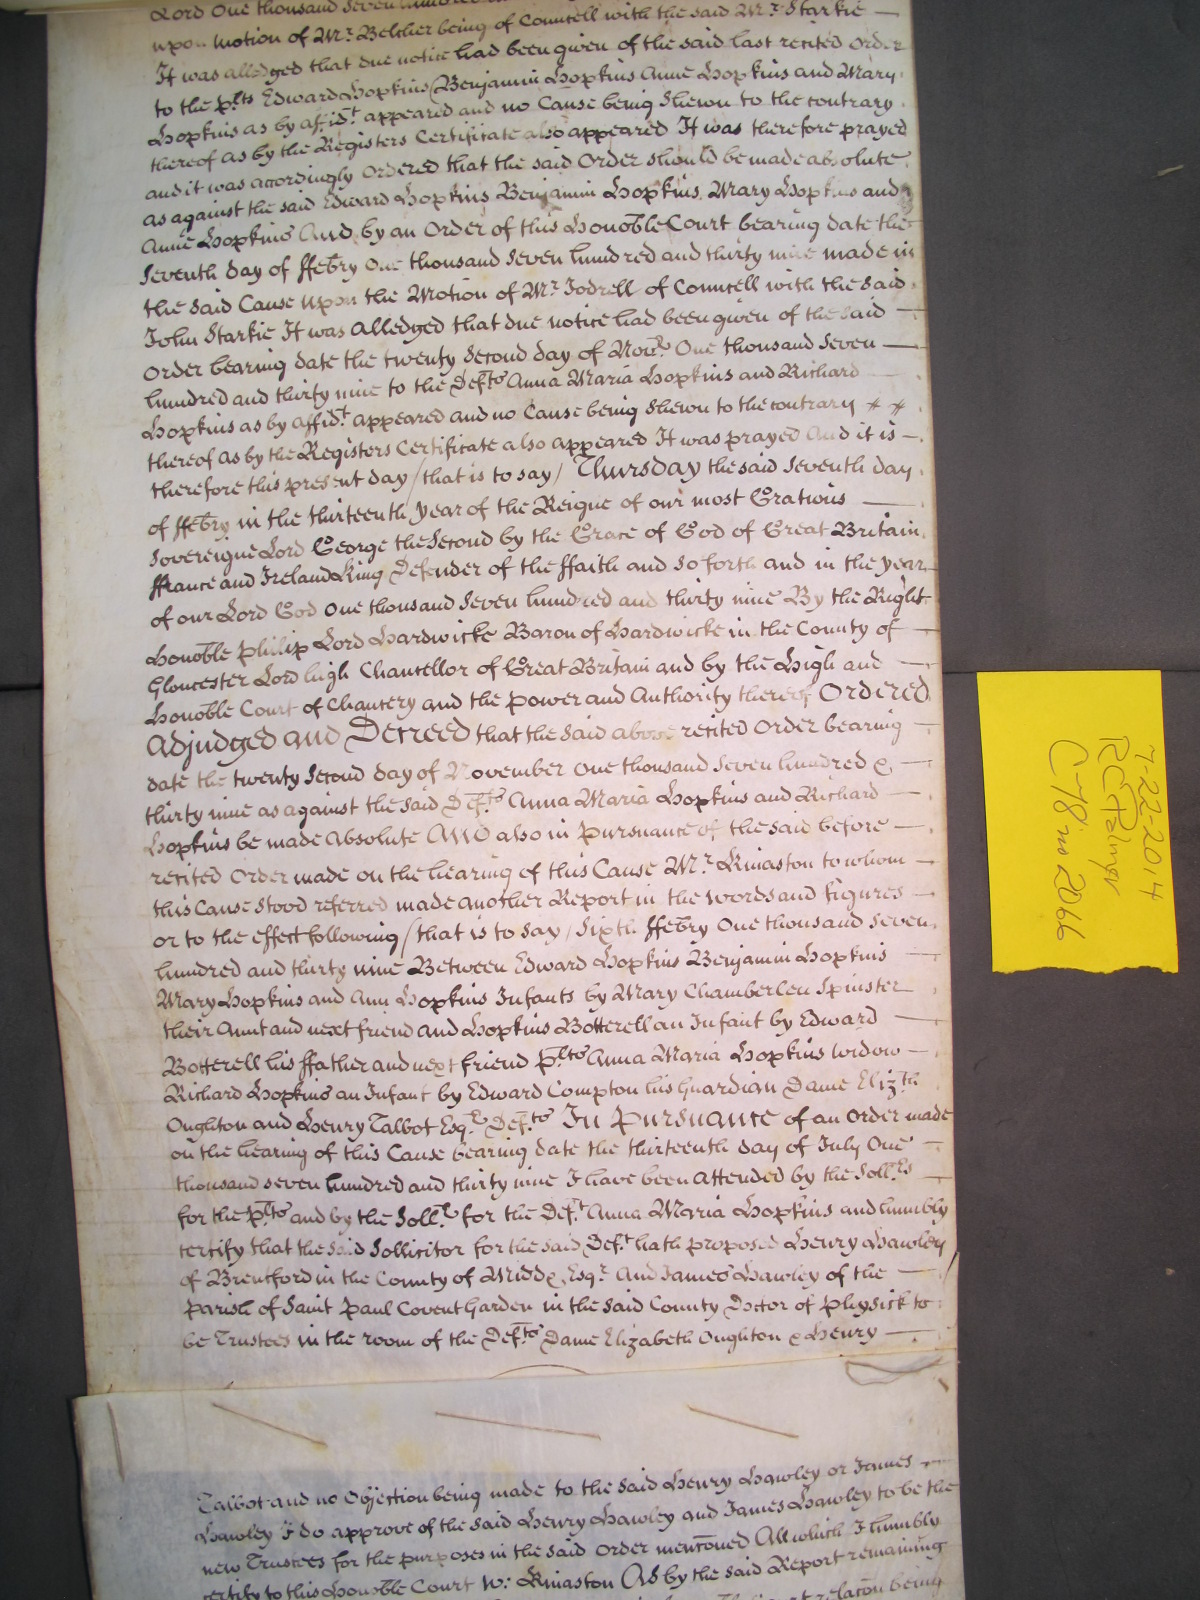 Lord One thousand Seven hundred
upon Motion of Mr. Belcher being of Councell with the said Mr. Starkie —
It was alledged that due notice had been given of the said last recited Order
to the Plts Edward Hopkins Benjamin Hopkins Anne Hopkins and Mary
Hopkins as by affidt appeared and no Cause being Shewn to the contrary
thereof as by the Registers Certificate also appeared It was therefore prayed
and it was accordingly Ordered that the said Order should be made absolute
as against the said Edward Hopkins Benjamin Hopkins Mary Hopkins and
Anne Hopkins And by an Order of this Honoble Court bearing date the
Seventh day of ffebry One thousand Seven hundred and thirty nine made in
the said Cause upon the Motion of Mr. Jodrell of Councell with the said
John Starkie It was Alledged that due notice had been given of the said —
Order bearing date the twenty Second day of Novr. One thousand Seven —
hundred and thirty nine to the Defts Anna Maria Hopkins and Richard —
Hopkins as by affidt appeared and no Cause being Shewn to the contrary
thereof as by the Registers Certificate also appeared It was prayed And it is —
therefore this present day /that is to say/ Thursday the said Seventh day
of ffebry in the thirteenth year of the Reigne of our most Gratious —
Sovereigne Lord George the Second by the Grace of God of Great Britain
ffrance and Ireland King Defender of the ffaith and so forth and in the year
of our Lord God One thousand Seven hundred and thirty nine By the Right
Honoble Philip Lord Hardwicke Baron of Hardwicke in the County of —
Gloucester Lord high Chancellor of Great Britain and by the High and —
Honoble Court of Chancery and the Power and Authority thereof Ordered
Adjudged and Decreed that the said above recited Order bearing —
date the twenty Second day of November One thousand Seven hundred & —
thirty nine as against the said Defts Anna Maria Hopkins and Richard —
Hopkins be made Absolute And also in Pursuance of the said before —
recited Order made on the hearing of this Cause Mr. Kinaston to whom —
this Cause stood referred made another Report in the words and figures —
or to the effect following /that is to say/ Sixth ffebry One thousand Seven
hundred and thirty nine Between Edward Hopkins Benjamin Hopkins —
Mary Hopkins and Ann Hopkins Infants by Mary Chamberlen Spinster
their Aunt and next friend and Hopkins Botterell an Infant by Edward —
Botterell his ffather and next friend Plts Anna Maria Hopkins widow —
Richard Hopkins an Infant by Edward Compton his guardian Dame Elizth
Oughton and Henry Talbot Esqr. Defts In Pursuance of an Order made
on the hearing of this Cause bearing date the thirteenth day of July One —
thousand seven hundred and thirty nine I have been attended by the Sollrs —
for the Plts and by the Sollr for the Deft Anna Maria Hopkins and humbly
certify that the said Sollicitor for the said Deft hath proposed Henry Hawley
of Brentford in the County of Middx Esqr. And James Hawley of the —
Parish of Saint Paul Covent Garden in the said County Doctor of Physick to
be Trustees in the room of the Defts Dame Elizabeth Oughton & Henry —
Talbot and no Objection being made to the said Henry Hawley or James —
Hawley I do approve of the said Henry Hawley and James Hawley to be the
new Trustees for the purposes in the said Order menconed All which I humbly
certify to this Honoble Court W: Kinaston As by the said Report remaining
relacon being
7-22-2014
RCPalmer
C78 no 2066